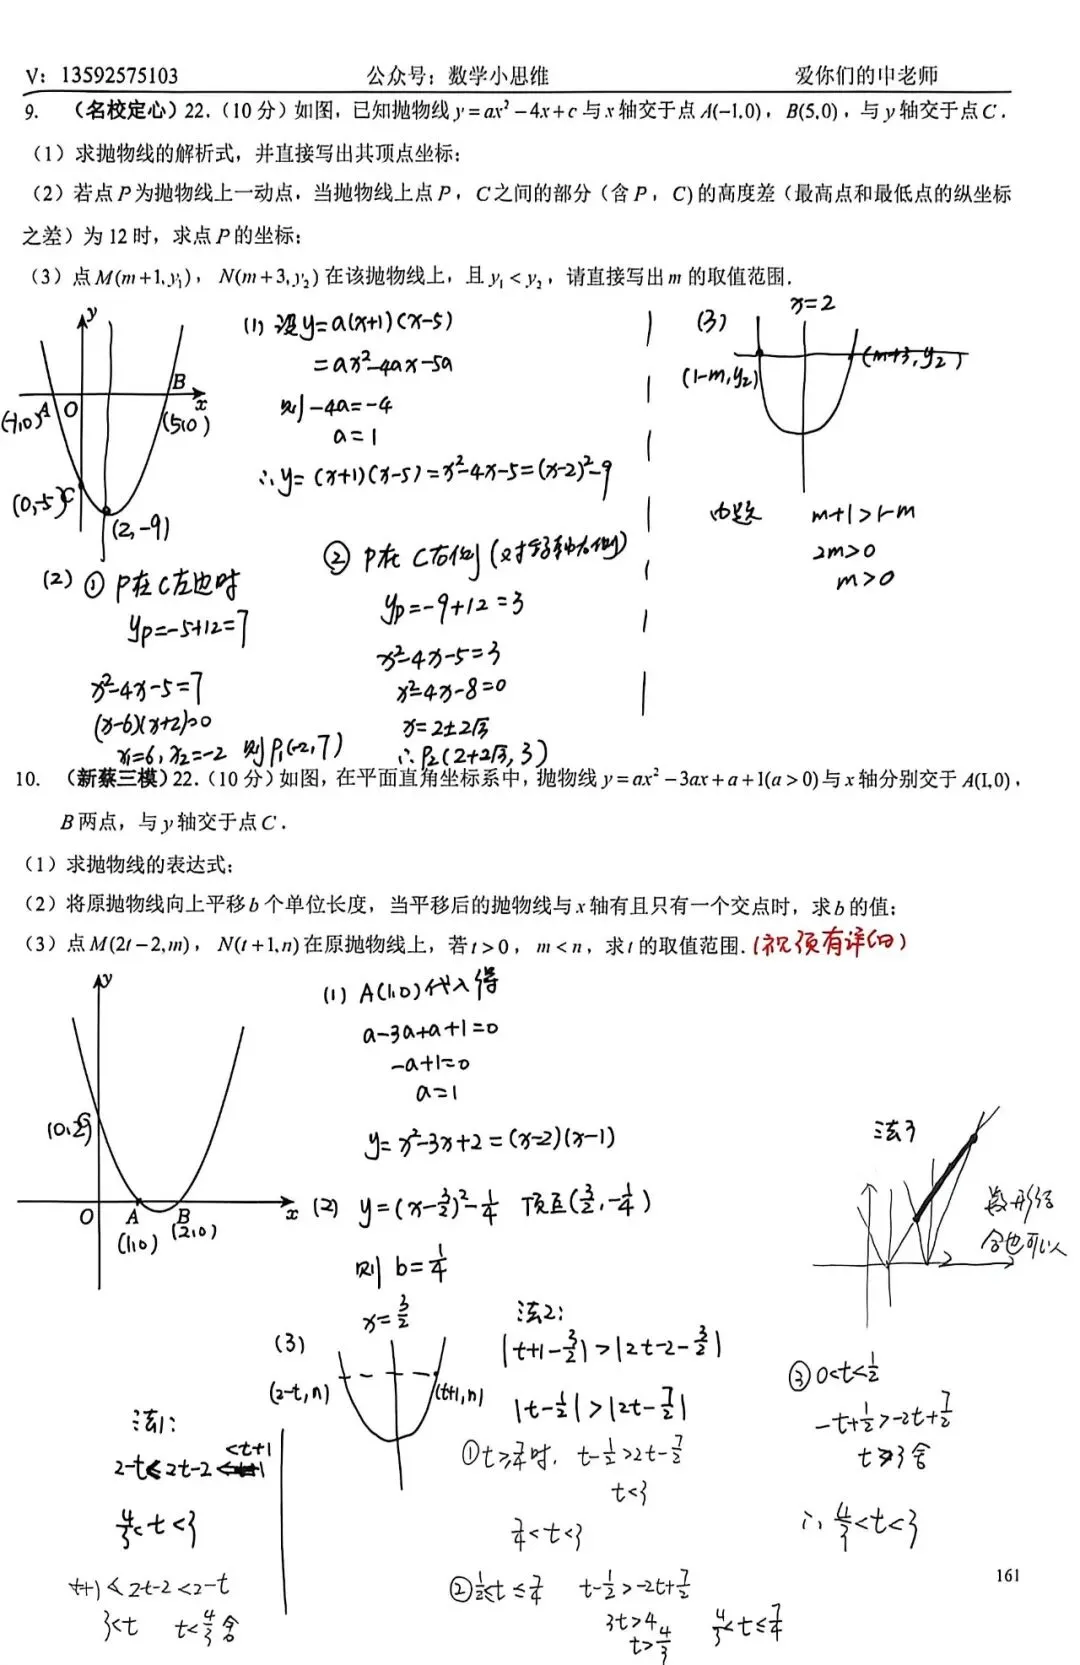 V: 13592575103 公众号：数学小思维 爱你们的申老师
9. （名校定心）22.（10分）如图，已知抛物线 y=ax²-4x+c 与 x 轴交于点 A(-1,0)，B(5,0)，与 y 轴交于点 C.
（1）求抛物线的解析式，并直接写出其顶点坐标；
（2）若点 P 为抛物线上一动点，当抛物线上点 P，C 之间的部分（含 P，C）的高度差（最高点和最低点的纵坐标
之差）为 12 时，求点 P 的坐标；
（3）点 M(m+1,y₁)，N(m+3,y₂) 在该抛物线上，且 y₁<y₂，请直接写出 m 的取值范围.
y
A
O
B
x
(-1,0)
(5,0)
C
(0,-5)
(2,-9)
(1) 设 y=a(x+1)(x-5)
=ax²-4ax-5a
则 -4a=-4
a=1
∴y=(x+1)(x-5)=x²-4x-5=(x-2)²-9
(2) ① P在C左边时
yp=-5+12=7
x²-4x-5=7
(x-6)(x+2)=0
x=6, x₂=-2 则P₁(-2,7)
② P在C右侧(对称轴右侧)
yp=-9+12=3
x²-4x-5=3
x²-4x-8=0
x=2±2√3
∴P₂(2+2√3,3)
(3)
x=2
(1-m,y₂)
(m+3,y₂)
由题 m+1>1-m
2m>0
m>0
10. （新蔡三模）22.（10分）如图，在平面直角坐标系中，抛物线 y=ax²-3ax+a+1(a>0) 与 x 轴分别交于 A(1,0)，
B 两点，与 y 轴交于点 C.
（1）求抛物线的表达式；
（2）将原抛物线向上平移 b 个单位长度，当平移后的抛物线与 x 轴有且只有一个交点时，求 b 的值；
（3）点 M(2t-2,m)，N(t+1,n) 在原抛物线上，若 t>0，m<n，求 t 的取值范围. (视频有详细)
y
(0,2)
C
O
A
B
x
(1,0)
(2,0)
(1) A(1,0)代入得
a-3a+a+1=0
-a+1=0
a=1
y=x²-3x+2=(x-2)(x-1)
(2) y=(x-3/2)²-1/4 顶点(3/2,-1/4)
则 b=1/4
(3)
x=3/2
(2-t,n)
(t+1,n)
法1:
2-t<2t-2<t+1
4/3<t<3
t+1<2t-2<2-t
3<t t<4/3 舍
法2:
|t+1-3/2|>|2t-2-3/2|
|t-1/2|>|2t-7/2|
①t≥7/4时, t-1/2>2t-7/2
t<3
7/4<t<3
②1/2≤t≤7/4 t-1/2>-2t+7/2
3t>4
t>4/3
4/3<t≤7/4
③0<t<1/2
-t+1/2>-2t+7/2
t>3舍
∴ 4/3<t<3
法3
数形结
合也可以
161